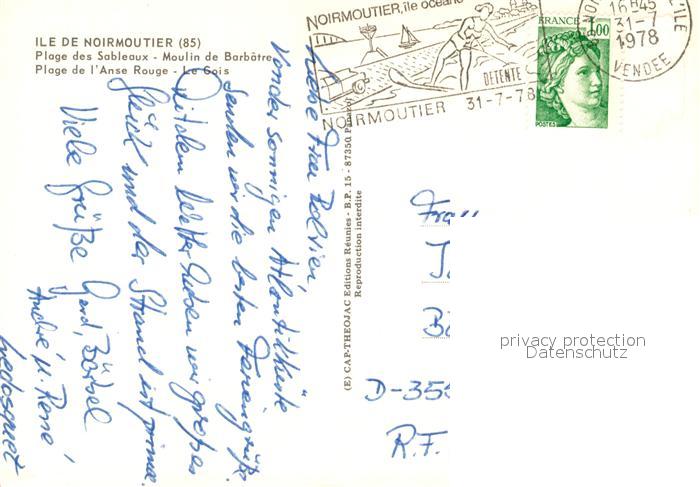 ILE DE NOIRMOUTIER (85)
Plage des Sableaux - Moulin de Barbâtre
Plage de l'Anse Rouge - Le Gois
NOIRMOUTIER, île océane
DETENTE
NOIRMOUTIER 31-7-78
16H45
31-7
1978
VENDEE
FRANCE 1,00
POSTES
Liebe Frau
Von der sonnigen Atlantikküste
senden wir die besten Feriengrüße.
Mit dem Wetter haben wir großes
Glück und der Strand ist prima.
Viele Grüße Gerd, Bärbel
André u. René
(E) CAP-THEOJAC Editions Réunies - B.P. 15 - 87350 Panazol
Reproduction interdite
Frau
D-355
R.F.
privacy protection
Datenschutz